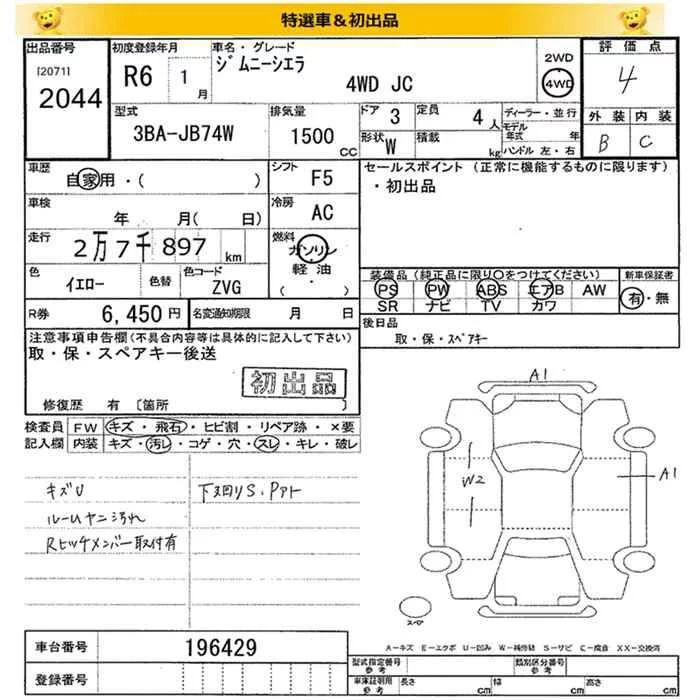 特選車&初出品
出品番号
[2071]
2044
初度登録年月
R6 1月
車名・グレード
ジムニーシエラ
4WD JC
2WD
4WD
評価点
4
外装 内装
B C
型式
3BA-JB74W
排気量
1500 CC
ドア 3
定員 4人
形状 W
積載 kg
ディーラー・並行
モデル年式 年
ハンドル 左・右
車歴
自家用・( )
シフト F5
セールスポイント (正常に機能するものに限ります)
・初出品
車検
年 月( 日)
冷房 AC
走行
2万7千897 km
燃料
ガソリン
軽油
( ・ )
色
イエロー
色替
色コード
ZVG
装備品(純正品に限り○をつけてください)
新車保証書
PS PW ABS エアB AW
有・無
SR ナビ TV カワ
R券 6,450円
名変通知期限 月 日
後日品
取・保・スペアキー
注意事項申告欄(不具合内容等は具体的に記入して下さい)
取・保・スペアキー後送
初出品
修復歴 有 〔箇所 〕
検査員記入欄
FW キズ・飛石・ヒビ割・リペア跡・×要
内装 キズ・汚れ・コゲ・穴・スレ・キレ・破レ
キズU
ルームヤニ汚れ
Rヒッチメンバー取付有
下廻りS・Pアト
A1
W2
A1
スペア
A-キズ E-エクボ U-凹み W-補修跡 S-サビ C-腐食 XX-交換済
車台番号 196429
登録番号
型式指定番号 参考
類別区分番号 参考
車庫証明用 参考
長さ cm 幅 cm 高さ cm